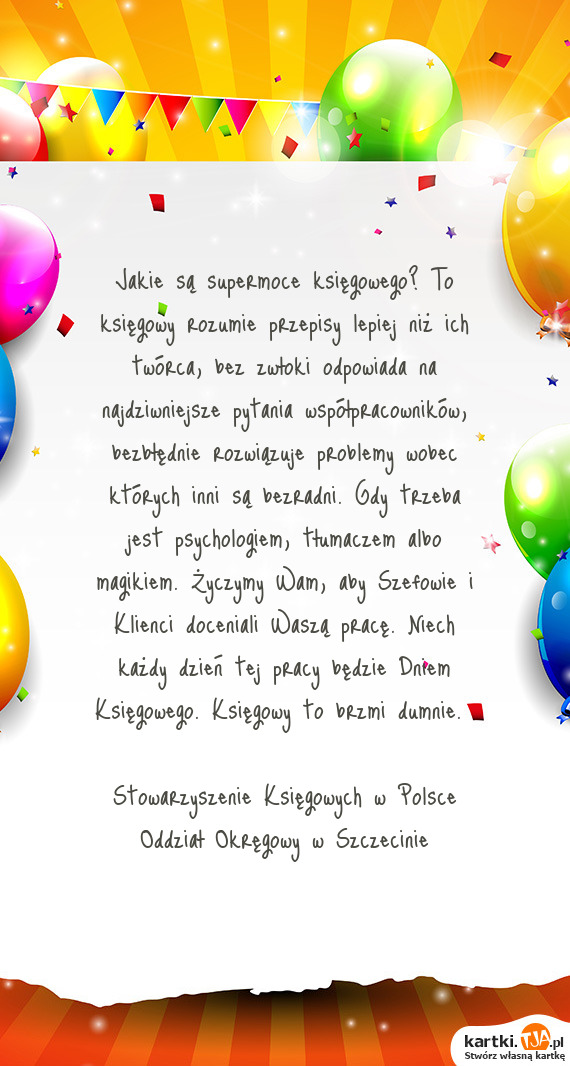 Jakie są supermoce księgowego? To
księgowy rozumie przepisy lepiej niż ich
twórca, bez zwłoki odpowiada na
najdziwniejsze pytania współpracowników,
bezbłędnie rozwiązuje problemy wobec
których inni są bezradni. Gdy trzeba
jest psychologiem, tłumaczem albo
magikiem. Życzymy Wam, aby Szefowie i
Klienci doceniali Waszą pracę. Niech
każdy dzień tej pracy będzie Dniem
Księgowego. Księgowy to brzmi dumnie.
Stowarzyszenie Księgowych w Polsce
Oddział Okręgowy w Szczecinie
kartki.TJA.pl
Stwórz własną kartkę